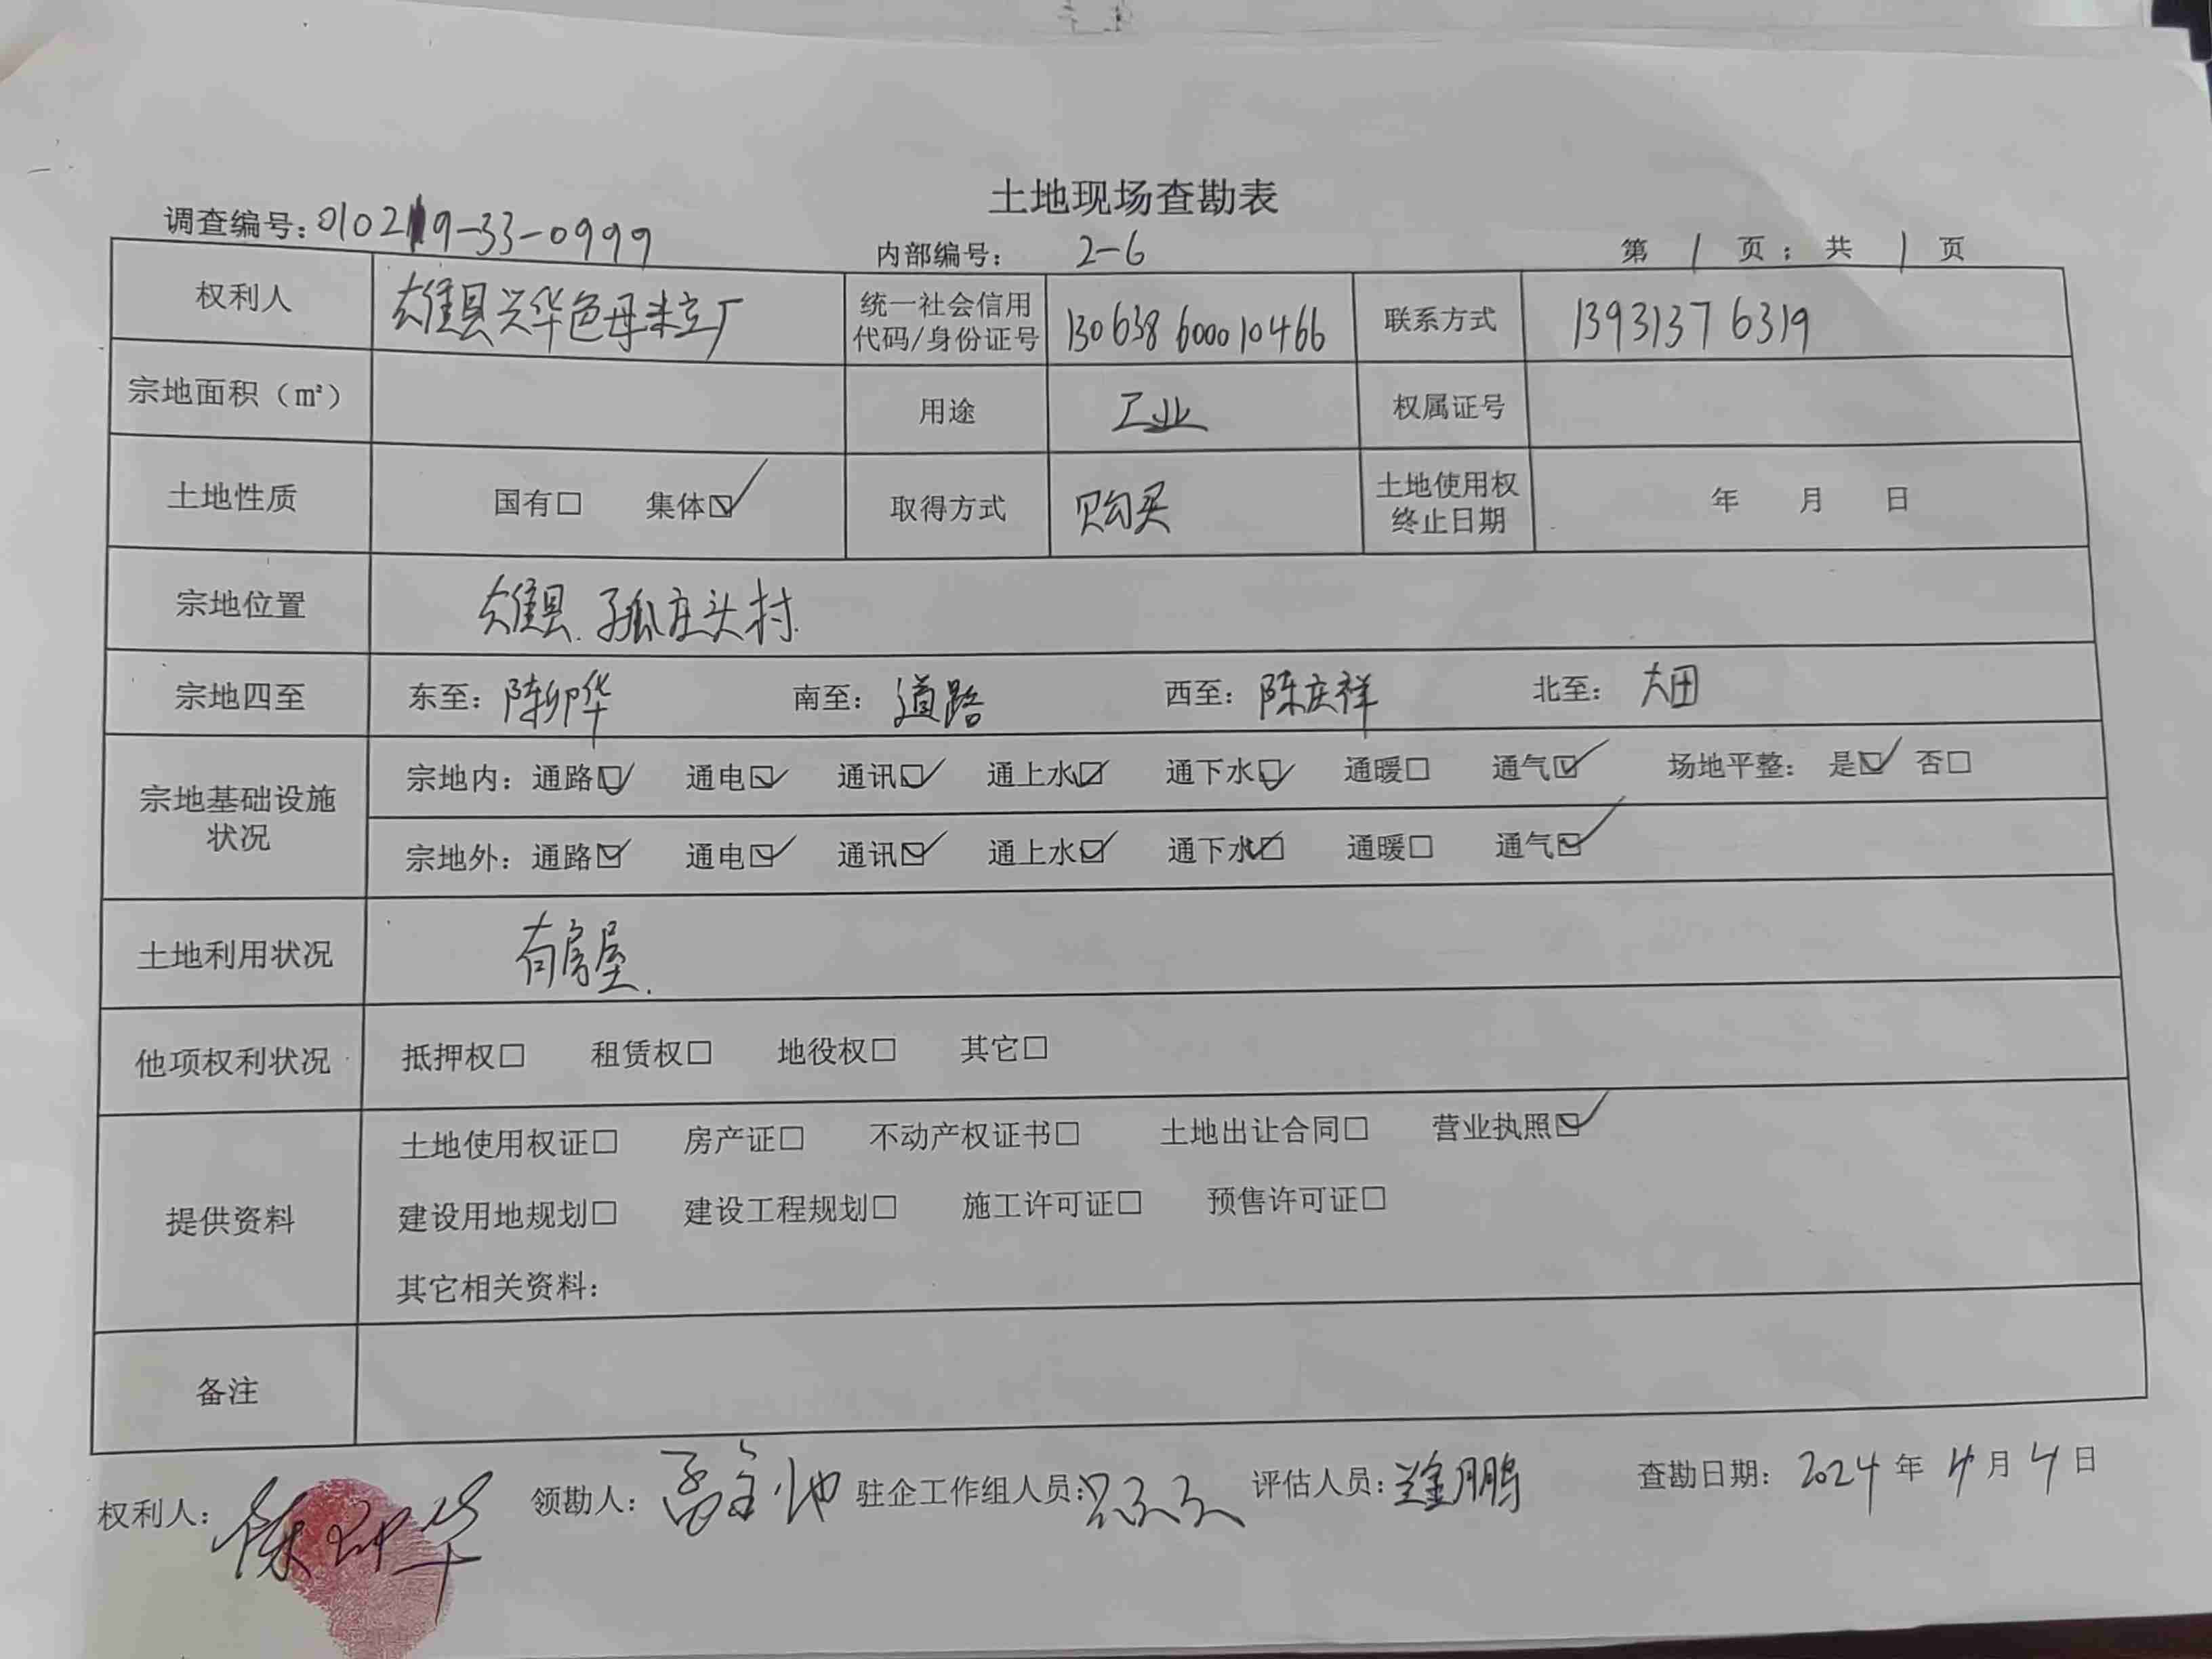 土地现场查勘表
调查编号：010219-33-0999 内部编号： 2-6 第 1 页；共 1 页
权利人 雄县兴华色母粒厂 统一社会信用代码/身份证号 130638600010466 联系方式 13931376319
宗地面积（㎡） 用途 工业 权属证号
土地性质 国有☐ 集体☑ 取得方式 购买 土地使用权终止日期 年 月 日
宗地位置 雄县.孤庄头村.
宗地四至 东至：陈卯华 南至：道路 西至：陈庆祥 北至：大田
宗地基础设施状况 宗地内：通路☑ 通电☑ 通讯☑ 通上水☑ 通下水☑ 通暖☐ 通气☑ 场地平整：是☑ 否☐
宗地外：通路☑ 通电☑ 通讯☑ 通上水☑ 通下水☑ 通暖☐ 通气☑
土地利用状况 有房屋.
他项权利状况 抵押权☐ 租赁权☐ 地役权☐ 其它☐
提供资料 土地使用权证☐ 房产证☐ 不动产权证书☐ 土地出让合同☐ 营业执照☑
建设用地规划☐ 建设工程规划☐ 施工许可证☐ 预售许可证☐
其它相关资料：
备注
权利人：陈卯华 领勘人： 驻企工作组人员： 评估人员： 查勘日期：2024年4月4日